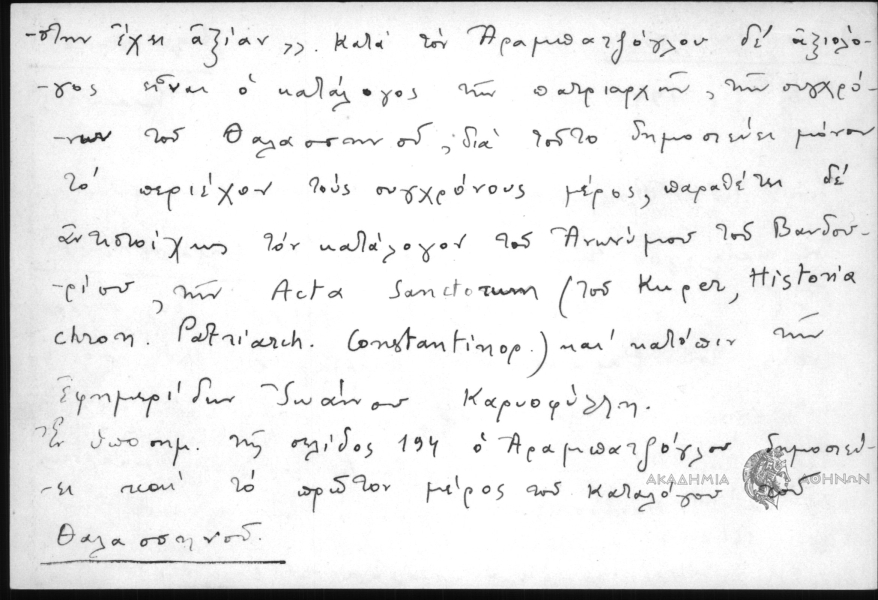 -στην ἔχει ἀξίαν». Κατά τόν Ἀραμπατζόγλου δέ ἀξιολό-
-γος εἶναι ὁ κατάλογος τῶν πατριαρχῶν, τῶν συγχρό-
-νων τοῦ Θαλασσηνοῦ, διά τοῦτο δημοσιεύει μόνον
τό περιέχον τούς συγχρόνους μέρος, παραθέτει δέ
ἀντιστοίχως τόν κατάλογον τοῦ Ἀνωνύμου τοῦ Βανδου-
-ρίου, τῶν Acta Sanctorum (τοῦ Kuper, Historia
chron. Patriarch. Constantinop.) καί κατόπιν τῶν
Ἐφημερίδων Ἰωάννου Καρυοφύλλη.
Ἐν ὑποσημ. τῆς σελίδος 194 ὁ Ἀραμπατζόγλου δημοσιεύ-
-ει καί τό πρῶτον μέρος τοῦ Καταλόγου τοῦ
ΑΚΑΔΗΜΙΑ ΑΘΗΝΩΝ
Θαλασσηνοῦ.